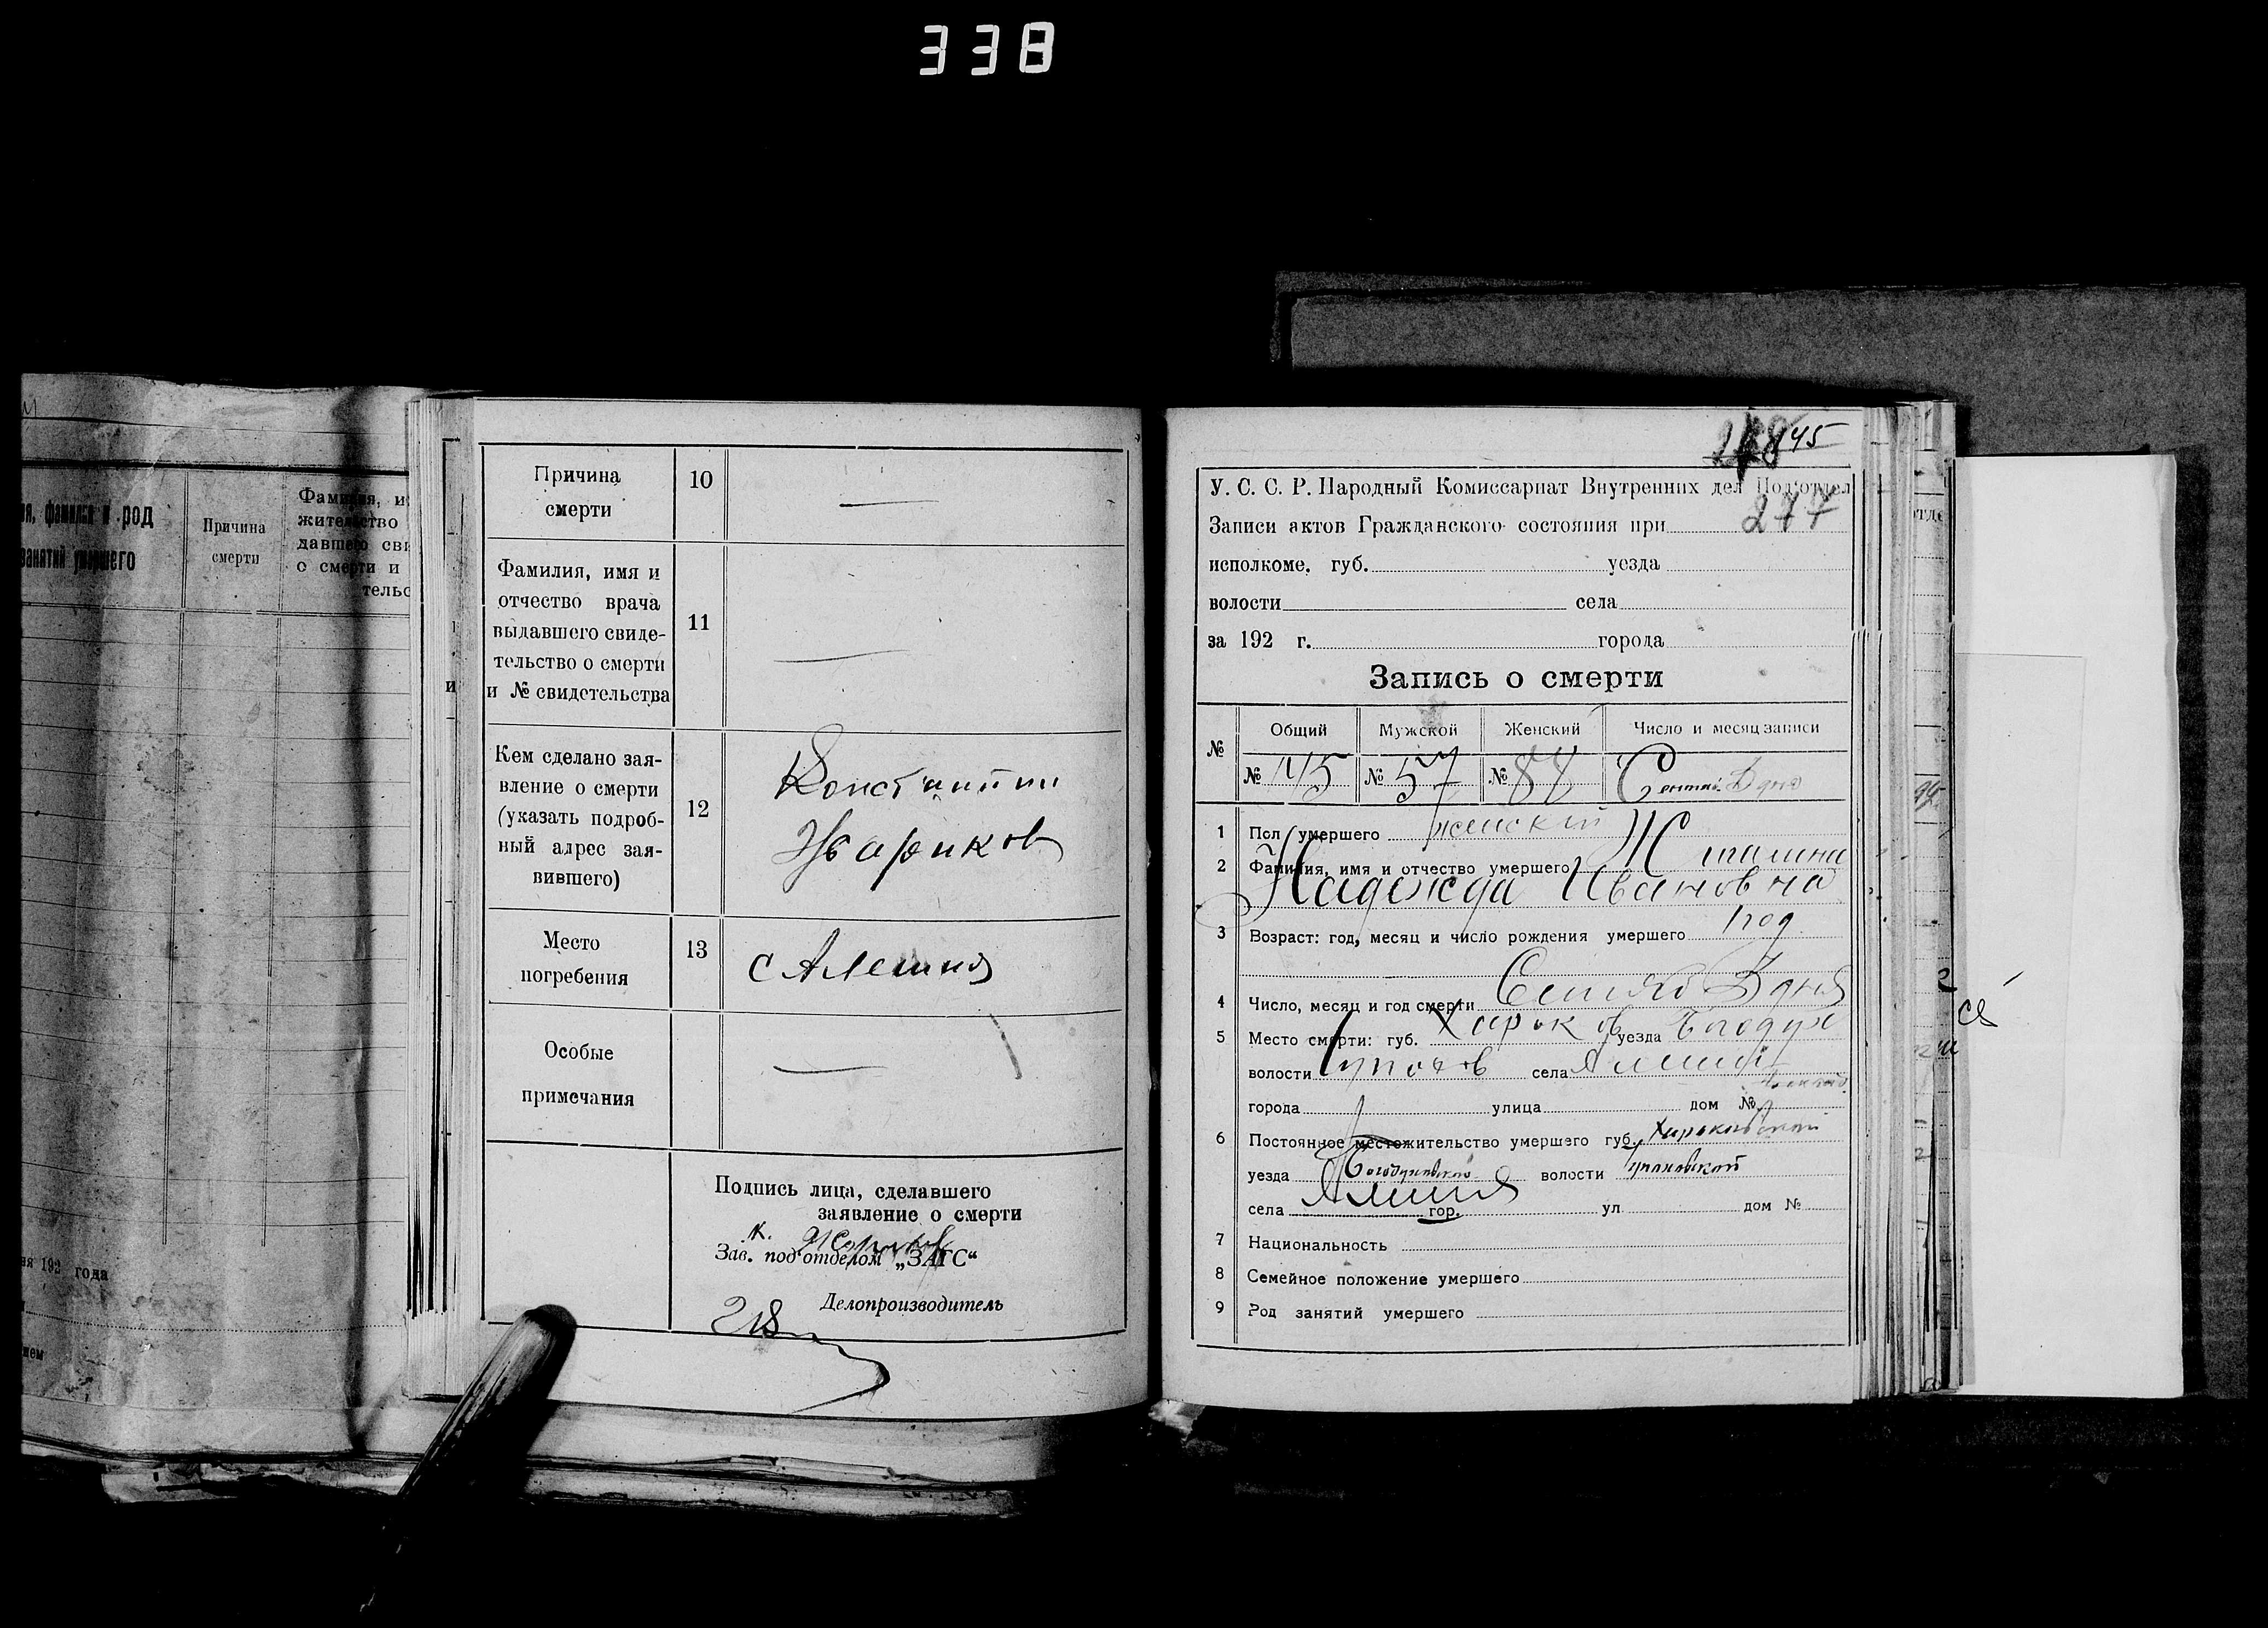 338
я, фамилия и род
занятий умершего
Причина
смерти
Фамилия, и
жительство
давшего сви
о смерти и
тельс
192 года
Причина
смерти
10
—
Фамилия, имя и
отчество врача
выдавшего свиде-
тельство о смерти
и № свидетельства
11
—
Кем сделано зая-
вление о смерти
(указать подроб-
ный адрес зая-
вившего)
12
Константин
Жариков
Место
погребения
13
с Алешня
Особые
примечания
—
Подпись лица, сделавшего
заявление о смерти
К.
Зав. под'отделом „ЗАГС“
Делопроизводитель
145
У. С. С. Р. Народный Комиссариат Внутренних дел Под'отдел
277
Записи актов Гражданского состояния при
исполкоме. губ. уезда
волости села
за 192 г. города
Запись о смерти
№ Общий Мужской Женский Число и месяц записи
№ 145 № 57 № 88
1 Пол умершего женский
2 Фамилия, имя и отчество умершего
Надежда Ивановна
3 Возраст: год, месяц и число рождения умершего 1 год
4 Число, месяц и год смерти
5 Место смерти: губ. Харьков уезда Богодух
волости села
города улица дом №
6 Постоянное местожительство умершего губ. Харьковской
уезда Богодуховской волости
села Алешня гор. ул. дом №
7 Национальность
8 Семейное положение умершего
9 Род занятий умершего